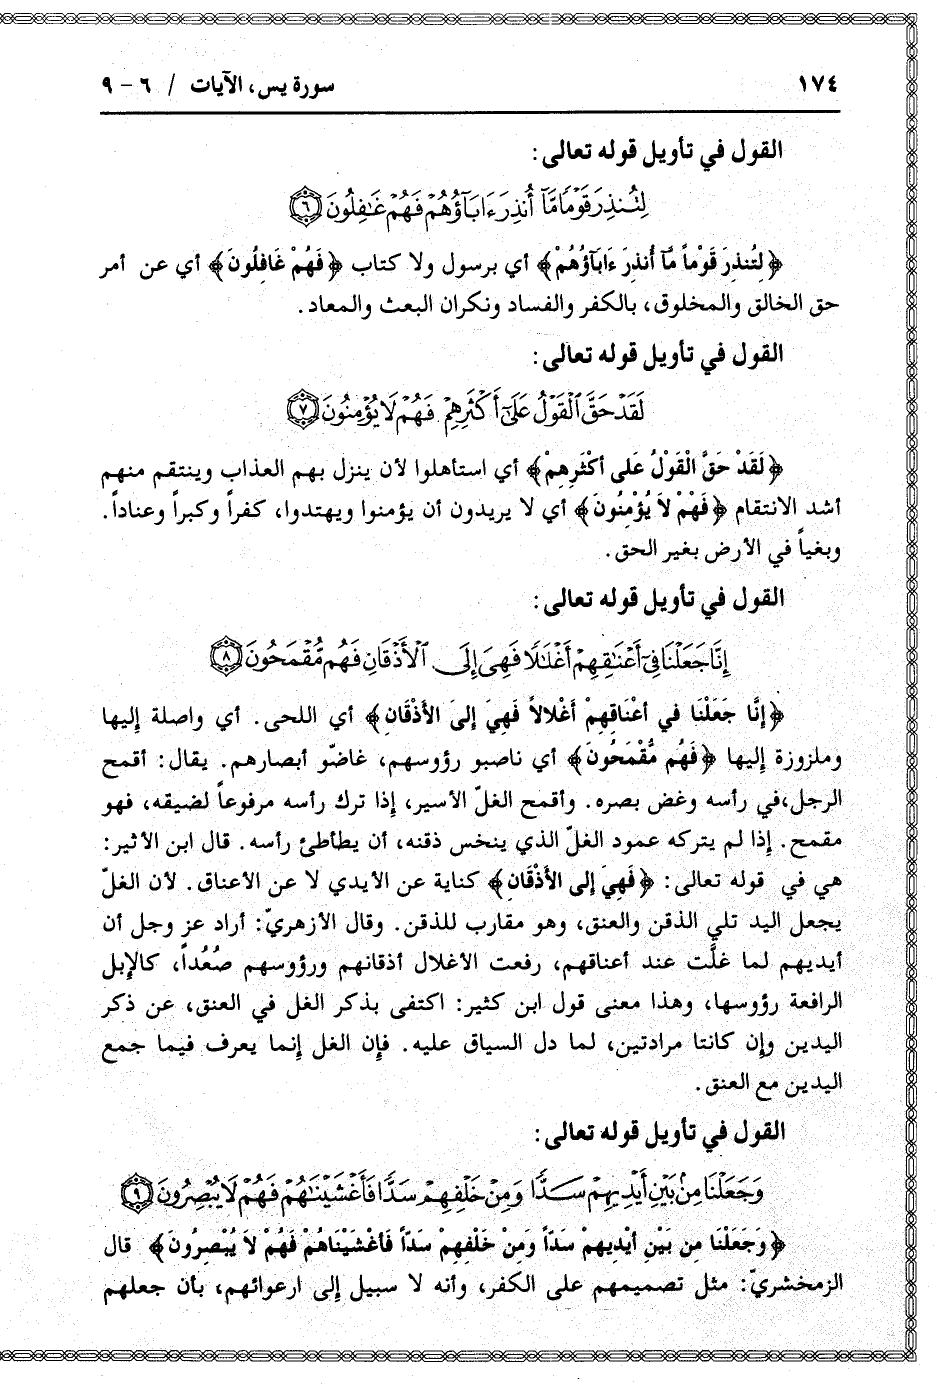 ١٧٤ سورة يس، الآيات / ٦ - ٩
القول في تأويل قوله تعالى:
لِتُنذِرَ قَوْمًا مَّآ أُنذِرَ ءَابَآؤُهُمْ فَهُمْ غَٰفِلُونَ ٦
﴿لِتُنذِرَ قَوْماً مَّآ أُنذِرَ ءَابَآؤُهُمْ﴾ أي برسول ولا كتاب ﴿فَهُمْ غَافِلُونَ﴾ أي عن أمر
حق الخالق والمخلوق، بالكفر والفساد ونكران البعث والمعاد.
القول في تأويل قوله تعالى:
لَقَدْ حَقَّ ٱلْقَوْلُ عَلَىٰٓ أَكْثَرِهِمْ فَهُمْ لَا يُؤْمِنُونَ ٧
﴿لَقَدْ حَقَّ الْقَوْلُ عَلى أكْثَرِهِمْ﴾ أي استأهلوا لأن ينزل بهم العذاب وينتقم منهم
أشد الانتقام ﴿فَهُمْ لاَ يُؤْمِنُونَ﴾ أي لا يريدون أن يؤمنوا ويهتدوا، كفراً وكبراً وعناداً.
وبغياً في الأرض بغير الحق.
القول في تأويل قوله تعالى:
إِنَّا جَعَلْنَا فِىٓ أَعْنَٰقِهِمْ أَغْلَٰلًا فَهِىَ إِلَى ٱلْأَذْقَانِ فَهُم مُّقْمَحُونَ ٨
﴿إنَّا جَعَلْنَا في أعْنَاقِهِمْ أغْلالاً فَهِيَ إلىَ الأَذْقَانِ﴾ أي اللحى. أي واصلة إليها
وملزوزة إليها ﴿فَهُم مُّقْمَحُونَ﴾ أي ناصبو رؤوسهم، غاضّو أبصارهم. يقال: أقمح
الرجل،في رأسه وغض بصره. وأقمح الغلّ الأسير، إذا ترك رأسه مرفوعاً لضيقه، فهو
مقمح. إذا لم يتركه عمود الغلّ الذي ينخس ذقنه، أن يطأطئ رأسه. قال ابن الأثير:
هي في قوله تعالى: ﴿فَهِيَ إلى الأَذْقَان﴾ كناية عن الأيدي لا عن الأعناق. لأن الغلّ
يجعل اليد تلي الذقن والعنق، وهو مقارب للذقن. وقال الأزهريّ: أراد عز وجل أن
أيديهم لما غلَّت عند أعناقهم، رفعت الأغلال أذقانهم ورؤوسهم صُعُداً، كالإبل
الرافعة رؤوسها، وهذا معنى قول ابن كثير: اكتفى بذكر الغل في العنق، عن ذكر
اليدين وإن كانتا مرادتين، لما دل السياق عليه. فإن الغل إنما يعرف فيما جمع
اليدين مع العنق.
القول في تأويل قوله تعالى:
وَجَعَلْنَا مِنۢ بَيْنِ أَيْدِيهِمْ سَدًّا وَمِنْ خَلْفِهِمْ سَدًّا فَأَغْشَيْنَٰهُمْ فَهُمْ لَا يُبْصِرُونَ ٩
﴿وَجَعَلْنَا مِن بَيْنِ أيْدِيهِمْ سَدّاً وَمِنْ خَلْفِهِمْ سَدّاً فَأغْشَيْنَاهُمْ فَهُمْ لاَ يُبْصِرُونَ﴾ قال
الزمخشريّ: مثل تصميمهم على الكفر، وأنه لا سبيل إلى ارعوائهم، بأن جعلهم